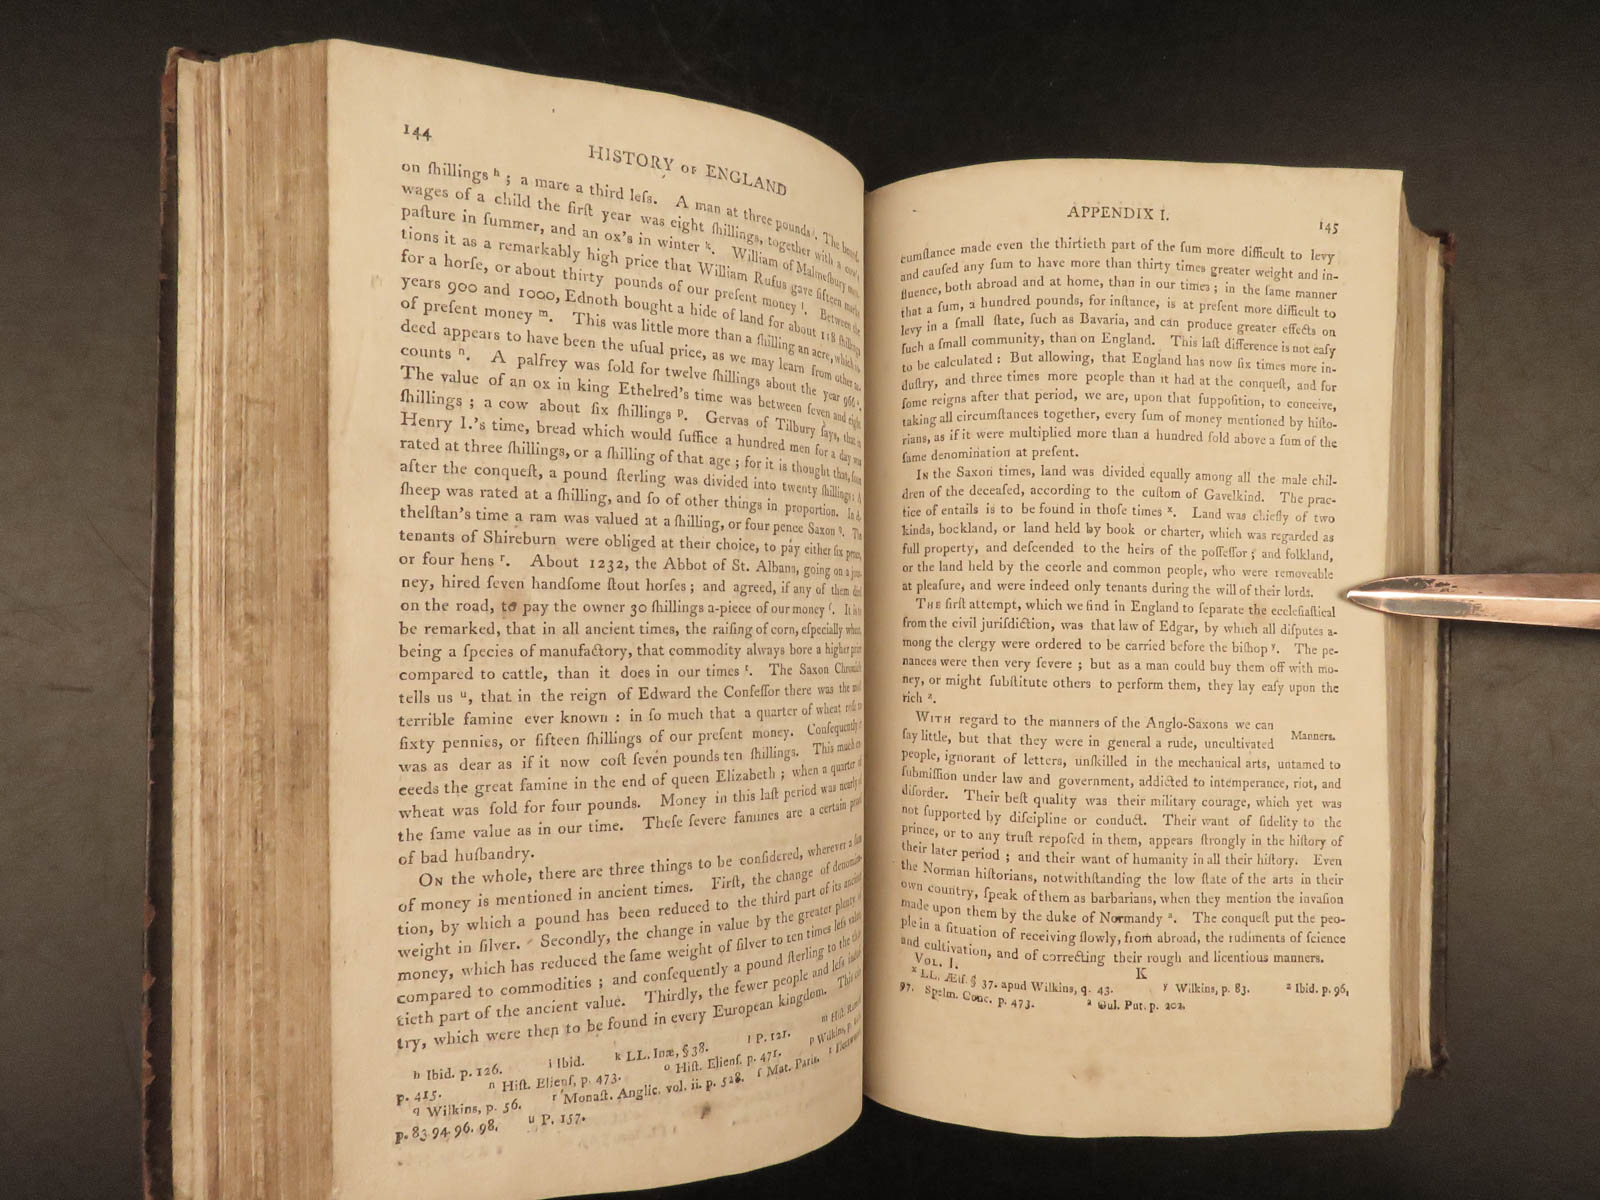 144
HISTORY OF ENGLAND
on ſhillings h; a mare a third leſs. A man at three pounds i. The board-
wages of a child the firſt year was eight ſhillings, together with a cow's
paſture in ſummer, and an ox's in winter k. William of Malmeſbury men-
tions it as a remarkably high price that William Rufus gave fifteen marks
for a horſe, or about thirty pounds of our preſent money l. Between the
years 900 and 1000, Ednoth bought a hide of land for about 118 ſhillings
of preſent money m. This was little more than a ſhilling an acre, which in-
deed appears to have been the uſual price, as we may learn from other ac-
counts n. A palfrey was ſold for twelve ſhillings about the year 966 o.
The value of an ox in king Ethelred's time was between ſeven and eight
ſhillings; a cow about ſix ſhillings p. Gervas of Tilbury ſays, that in
Henry I.'s time, bread which would ſuffice a hundred men for a day was
rated at three ſhillings, or a ſhilling of that age; for it is thought that, ſoon
after the conqueſt, a pound ſterling was divided into twenty ſhillings: A
ſheep was rated at a ſhilling, and ſo of other things in proportion. In A-
thelſtan's time a ram was valued at a ſhilling, or four pence Saxon q. The
tenants of Shireburn were obliged at their choice, to pay either ſix pence,
or four hens r. About 1232, the Abbot of St. Albans, going on a jour-
ney, hired ſeven handſome ſtout horſes; and agreed, if any of them died
on the road, to pay the owner 30 ſhillings a-piece of our money ſ. It is to
be remarked, that in all ancient times, the raiſing of corn, eſpecially wheat,
being a ſpecies of manufactory, that commodity always bore a higher price
compared to cattle, than it does in our times t. The Saxon Chronicle
tells us u, that in the reign of Edward the Confeſſor there was the moſt
terrible famine ever known: in ſo much that a quarter of wheat roſe to
ſixty pennies, or fifteen ſhillings of our preſent money. Conſequently it
was as dear as if it now coſt ſeven pounds ten ſhillings. This much ex-
ceeds the great famine in the end of queen Elizabeth; when a quarter of
wheat was ſold for four pounds. Money in this laſt period was nearly of
the ſame value as in our time. Theſe ſevere famines are a certain proof
of bad huſbandry.
ON the whole, there are three things to be conſidered, wherever a ſum
of money is mentioned in ancient times. Firſt, the change of denomina-
tion, by which a pound has been reduced to the third part of its ancient
weight in ſilver. Secondly, the change in value by the greater plenty of
money, which has reduced the ſame weight of ſilver to ten times leſs value,
compared to commodities; and conſequently a pound ſterling to the thir-
tieth part of the ancient value. Thirdly, the fewer people and leſs induſ-
try, which were then to be found in every European kingdom. This cir-
h Ibid. p. 126. i Ibid. k LL. Inæ, § 38. l P. 121. m Hiſt.
p. 415. n Hiſt. Elienſ. p. 473. o Hiſt. Elienſ. p. 471. p Wilkins, p.
q Wilkins, p. 56. r Monaſt. Anglic. vol. ii. p. 528. ſ Mat. Paris. t Fleetwood,
p. 83. 94. 96. 98. u P. 157.
APPENDIX I.
145
cumſtance made even the thirtieth part of the ſum more difficult to levy
and cauſed any ſum to have more than thirty times greater weight and in-
fluence, both abroad and at home, than in our times; in the ſame manner
that a ſum, a hundred pounds, for inſtance, is at preſent more difficult to
levy in a ſmall ſtate, ſuch as Bavaria, and can produce greater effects on
ſuch a ſmall community, than on England. This laſt difference is not eaſy
to be calculated: But allowing, that England has now ſix times more in-
duſtry, and three times more people than it had at the conqueſt, and for
ſome reigns after that period, we are, upon that ſuppoſition, to conceive,
taking all circumſtances together, every ſum of money mentioned by hiſto-
rians, as if it were multiplied more than a hundred fold above a ſum of the
ſame denomination at preſent.
IN the Saxon times, land was divided equally among all the male chil-
dren of the deceaſed, according to the cuſtom of Gavelkind. The prac-
tice of entails is to be found in thoſe times x. Land was chiefly of two
kinds, bockland, or land held by book or charter, which was regarded as
full property, and deſcended to the heirs of the poſſeſſor; and folkland,
or the land held by the ceorle and common people, who were removeable
at pleaſure, and were indeed only tenants during the will of their lords.
THE firſt attempt, which we find in England to ſeparate the eccleſiaſtical
from the civil juriſdiction, was that law of Edgar, by which all diſputes a-
mong the clergy were ordered to be carried before the biſhop y. The pe-
nances were then very ſevere; but as a man could buy them off with mo-
ney, or might ſubſtitute others to perform them, they lay eaſy upon the
rich z.
WITH regard to the manners of the Anglo-Saxons we can
Manners.
ſay little, but that they were in general a rude, uncultivated
people, ignorant of letters, unſkilled in the mechanical arts, untamed to
ſubmiſſion under law and government, addicted to intemperance, riot, and
diſorder. Their beſt quality was their military courage, which yet was
not ſupported by diſcipline or conduct. Their want of fidelity to the
prince, or to any truſt repoſed in them, appears ſtrongly in the hiſtory of
their later period; and their want of humanity in all their hiſtory. Even
the Norman hiſtorians, notwithſtanding the low ſtate of the arts in their
own country, ſpeak of them as barbarians, when they mention the invaſion
made upon them by the duke of Normandy a. The conqueſt put the peo-
ple in a ſituation of receiving ſlowly, from abroad, the rudiments of ſcience
and cultivation, and of correcting their rough and licentious manners.
VOL. I. K
x LL. Ælf. § 37. apud Wilkins, q. 43. y Wilkins, p. 83. z Ibid. p. 96,
97. Spelm. Conc. p. 473. a Gul. Put. p. 202.